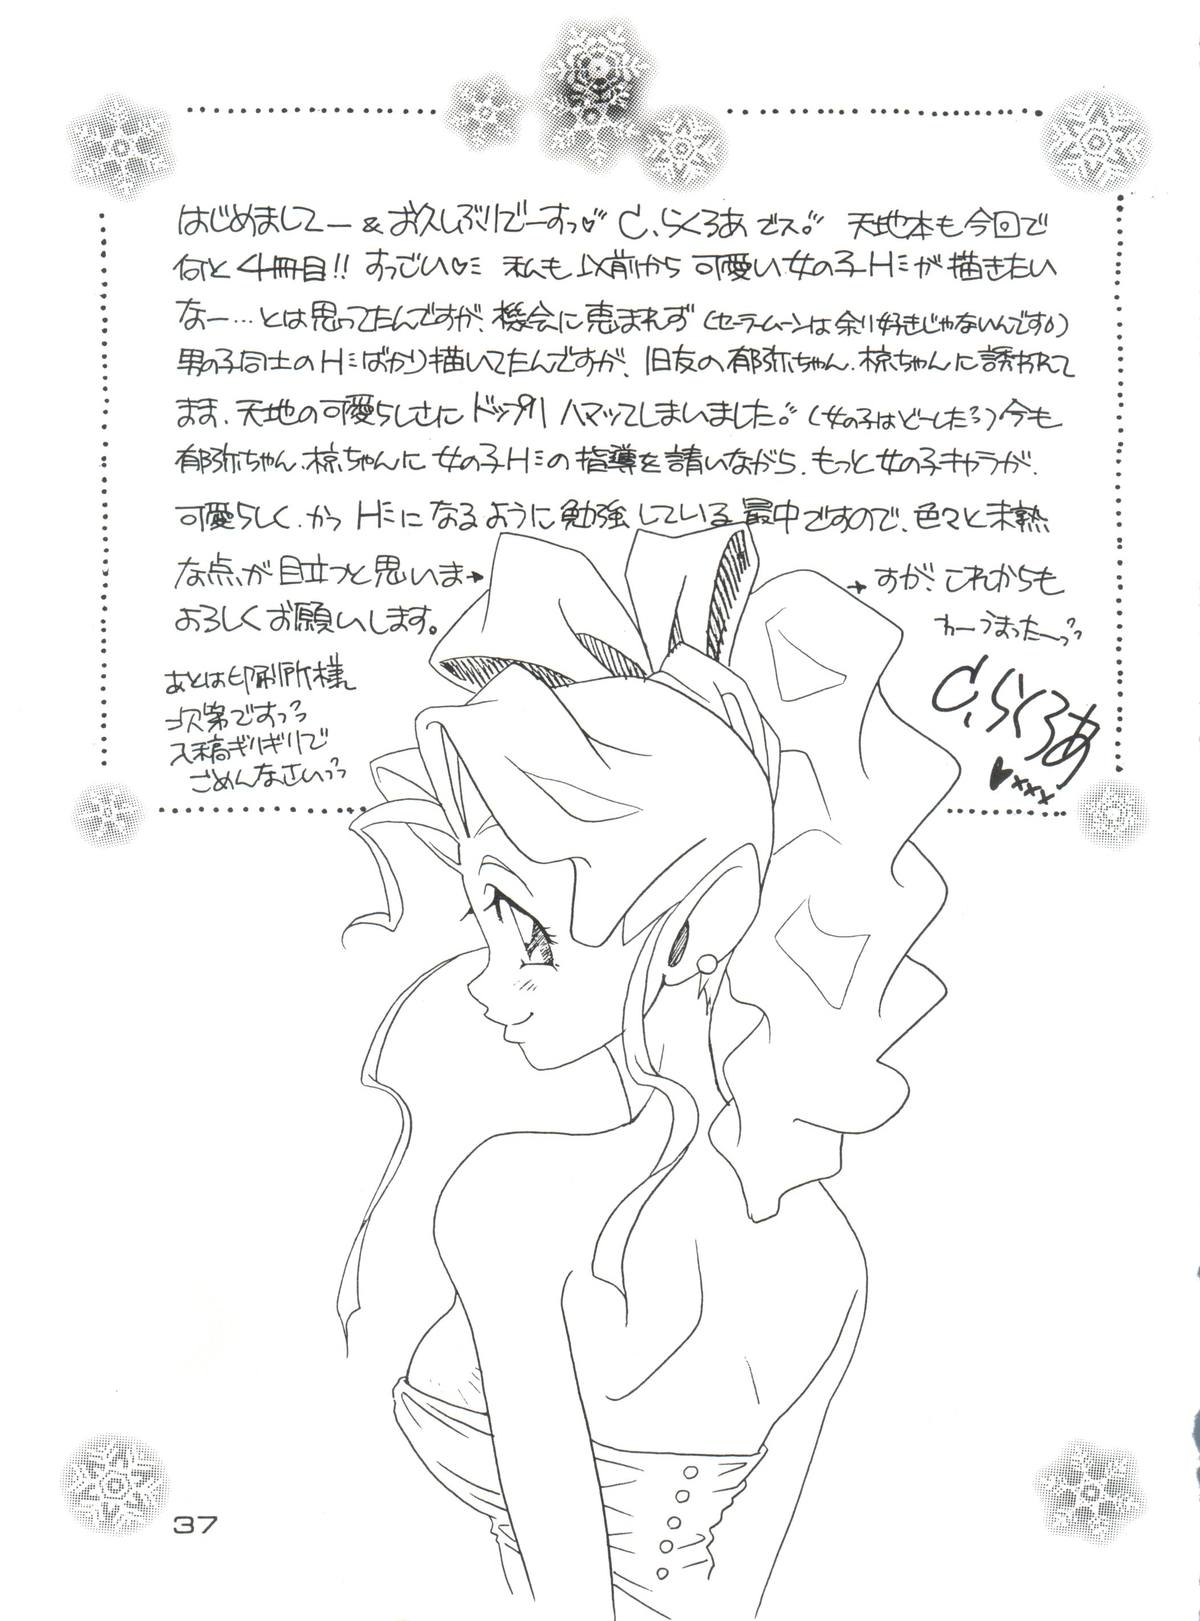 はじめましてー&お久しぶりでーすっ♡ C.らくろあでス。 天地本も今回で
何と4冊目!! すっごい♡ 私も以前から可愛い女の子Hが描きたい
なー…とは思ってたんですが、機会に恵まれず(セーラームーンは余り好きじゃないんです)
男の子同士のHばかり描いてたんですが、旧友の郁弥ちゃん、椋ちゃんに誘われて
まま、天地の可愛らしさにドップリハマッてしまいました。(女の子はどーした)今も
郁弥ちゃん、椋ちゃんに女の子Hの指導を請いながら、もっと女の子キャラが、
可愛らしく、かつHになるように勉強している最中ですので、色々と未熟
な点が目立つと思いま→ →すが、これからも
よろしくお願いします。
わーうまったーっ
あとは印刷所様
次第ですっっ
入稿ギリギリで
ごめんなさいっ
C.らくろあ
♥xxx
37